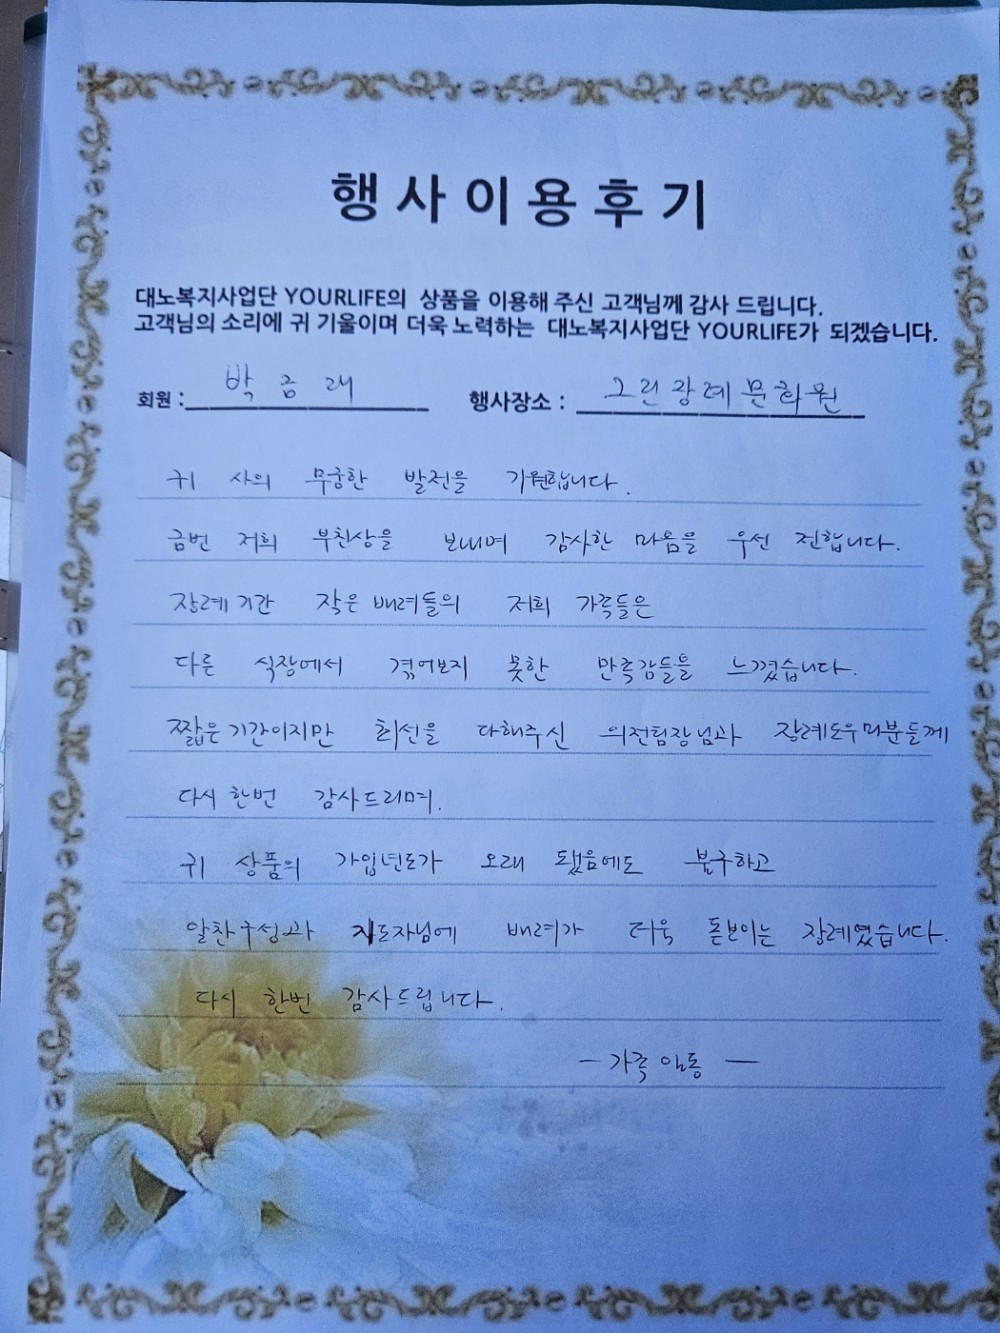 행사이용후기
대노복지사업단 YOURLIFE의 상품을 이용해 주신 고객님께 감사 드립니다.
고객님의 소리에 귀 기울이며 더욱 노력하는 대노복지사업단 YOURLIFE가 되겠습니다.
회원 : 박금래 행사장소 : 그린장례문화원
귀 사의 무궁한 발전을 기원합니다.
금번 저희 부친상을 보내며 감사한 마음을 우선 전합니다.
장례기간 작은 배려들의 저희 가족들은
다른 식장에서 겪어보지 못한 만족감들을 느꼈습니다.
짧은 기간이지만 최선을 다해주신 의전팀장님과 장례도우미분들께
다시 한번 감사드리며.
귀 상품의 가입년도가 오래 됐음에도 불구하고
알찬구성과 지도자님에 배려가 더욱 돋보이는 장례였습니다.
다시 한번 감사드립니다.
- 가족 일동 -